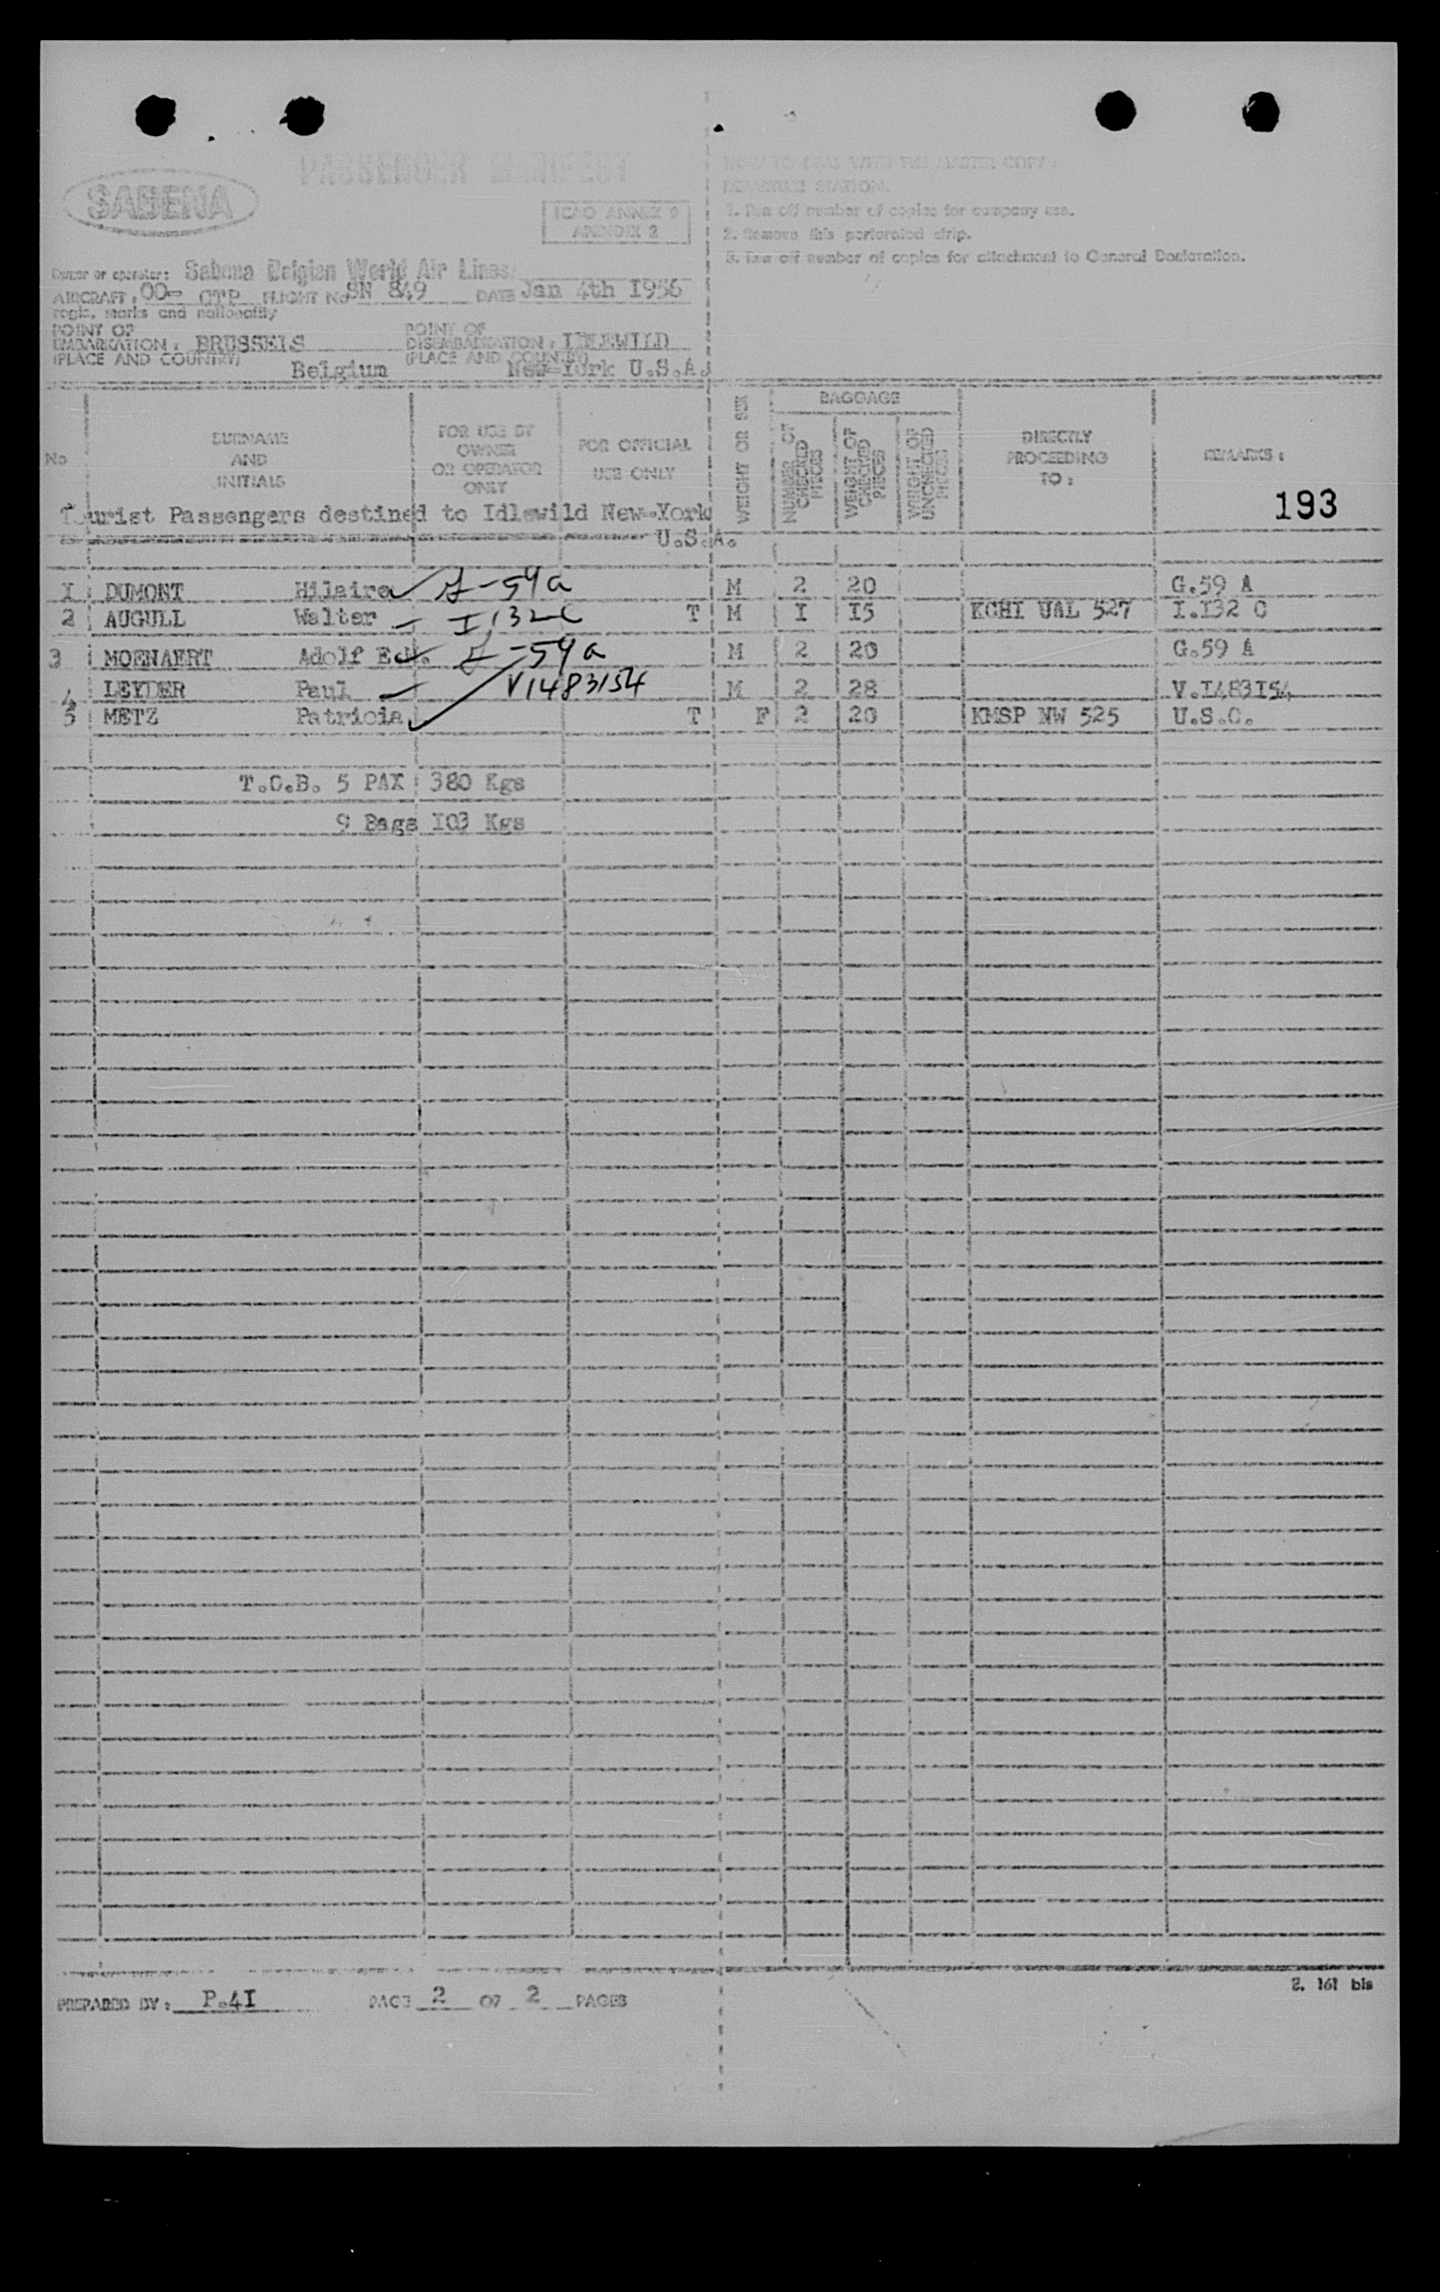 PASSENGER MANIFEST
SABENA
ICAO ANNEX 9
ANNDEX 2
HOW TO DEAL WITH THE MASTER COPY :
DEPARTURE STATION.
1. Run off number of copies for company use.
2. Remove this perforated strip.
3. Run off number of copies for attachment to General Declaration.
Owner or operator: Sabena Belgian World Air Lines
AIRCRAFT : OO- CTP FLIGHT No SN 849 DATE Jan 4th 1956
regis. marks and nationality
POINT OF EMBARKATION : BRUSSELS
(PLACE AND COUNTRY) Belgium
POINT OF DISEMBARKATION : IDLEWILD
(PLACE AND COUNTRY) New-York U.S.A.
No
SURNAME AND INITIALS
FOR USE BY OWNER OR OPERATOR ONLY
FOR OFFICIAL USE ONLY
WEIGHT OR SEX
BAGGAGE
NUMBER OF CHECKED PIECES
WEIGHT OF CHECKED PIECES
WEIGHT OF UNCHECKED PIECES
DIRECTLY PROCEEDING TO :
REMARKS :
193
Tourist Passengers destined to Idlewild New-York
U.S.A.
1 DUMONT Hilaire G-59a M 2 20 G.59 A
2 AUGULL Walter I,132C T M I I5 KCHI UAL 527 I.I32 C
3 MOENAERT Adolf Ed. G-59a M 2 20 G.59 A
4 LEYDER Paul V1483154 M 2 28 V.I483I54
5 METZ Patricia T F 2 20 KMSP NW 525 U.S.C.
T.O.B. 5 PAX 380 Kgs
9 Bags I03 Kgs
PREPARED BY : P.4I PAGE 2 OF 2 PAGES
2. 161 bis